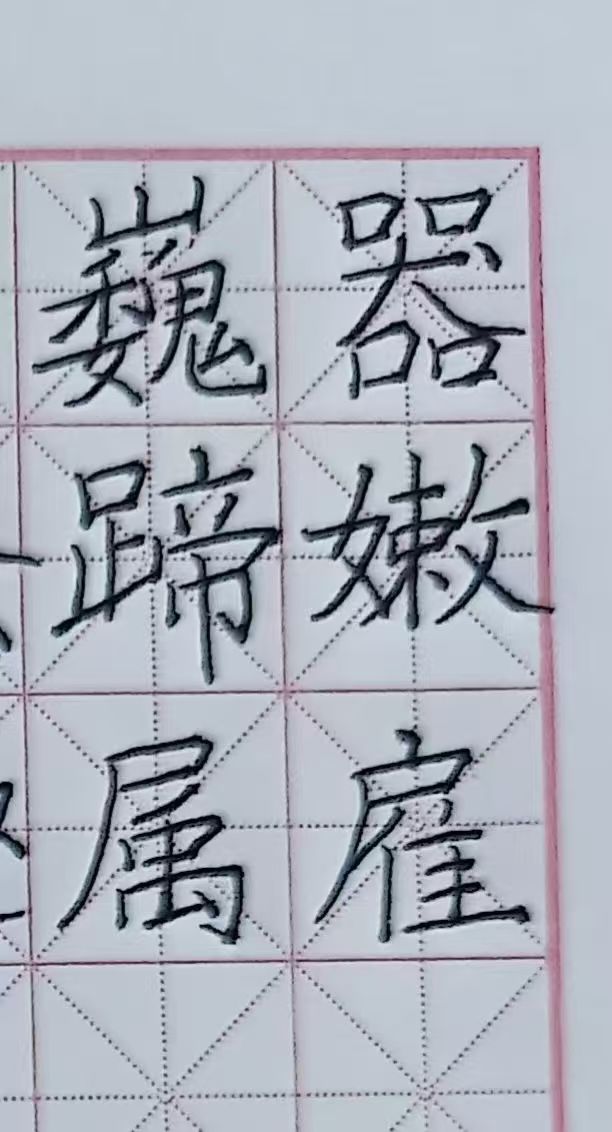 巍器
蹄嫩
属雇